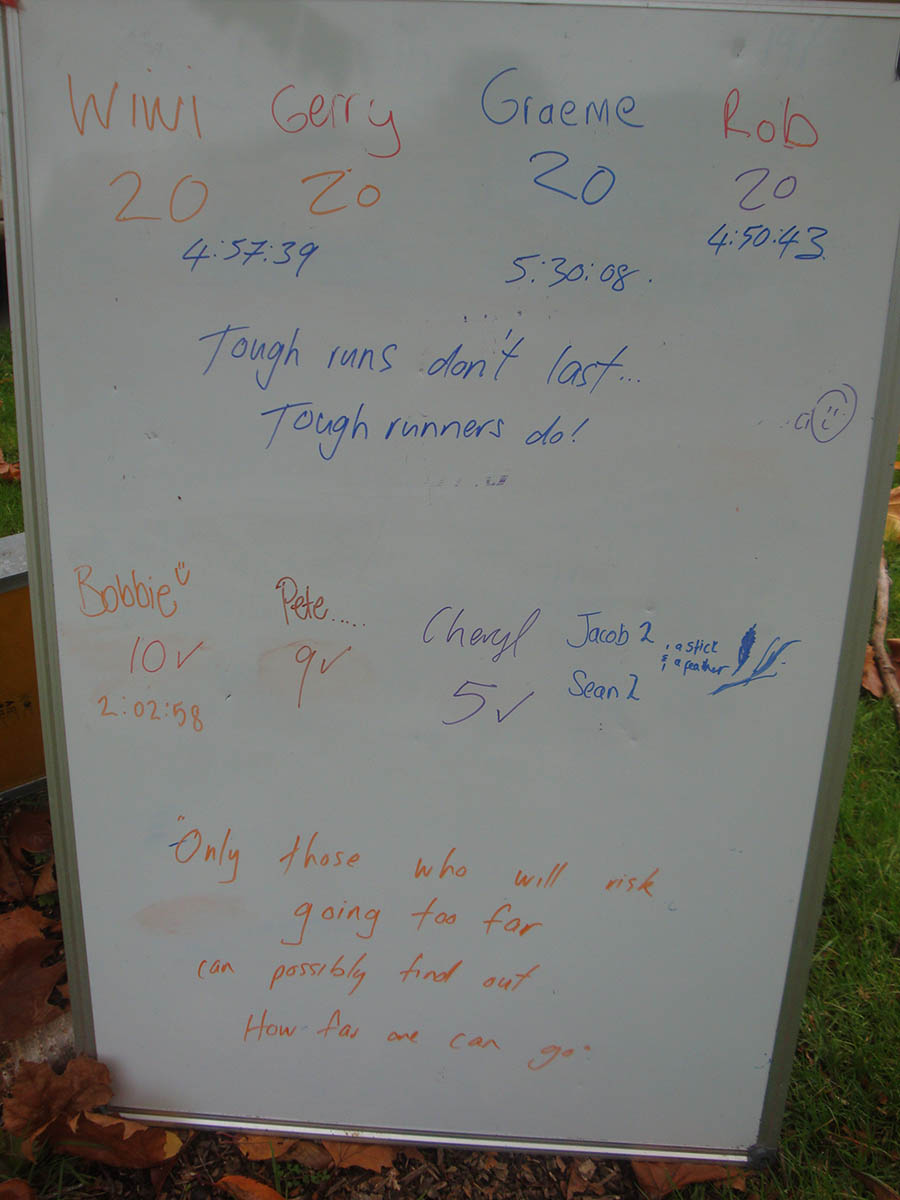 Wiwi Gerry Graeme Rob
20 20 20 20
4:57:39 5:30:08. 4:50:43
Tough runs don't last...
Tough runners do!
Bobbie Pete..... Cheryl Jacob 2, a stick
& a feather
10✓ 9✓ 5✓ Sean 2
2:02:58
"Only those who will risk
going too far
can possibly find out
How far one can go"